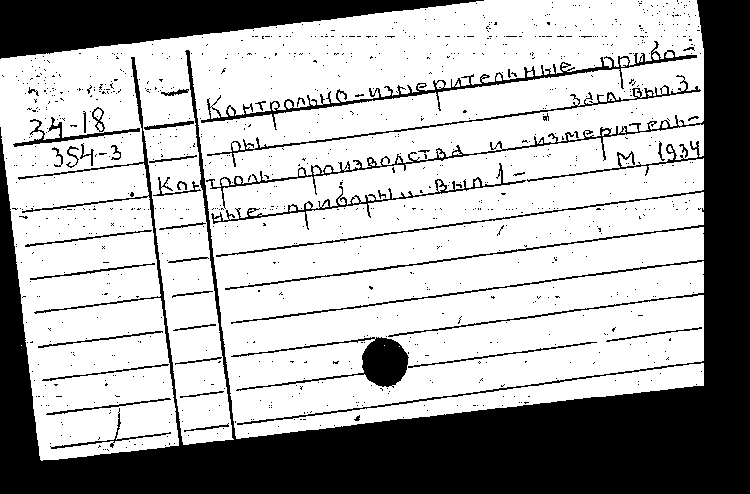 Контрольно-измерительные прибо-
34-18
загл. вып. 3.
ры.
354-3
Контроль производства и измеритель-
ные приборы... Вып. 1-
М., 1934